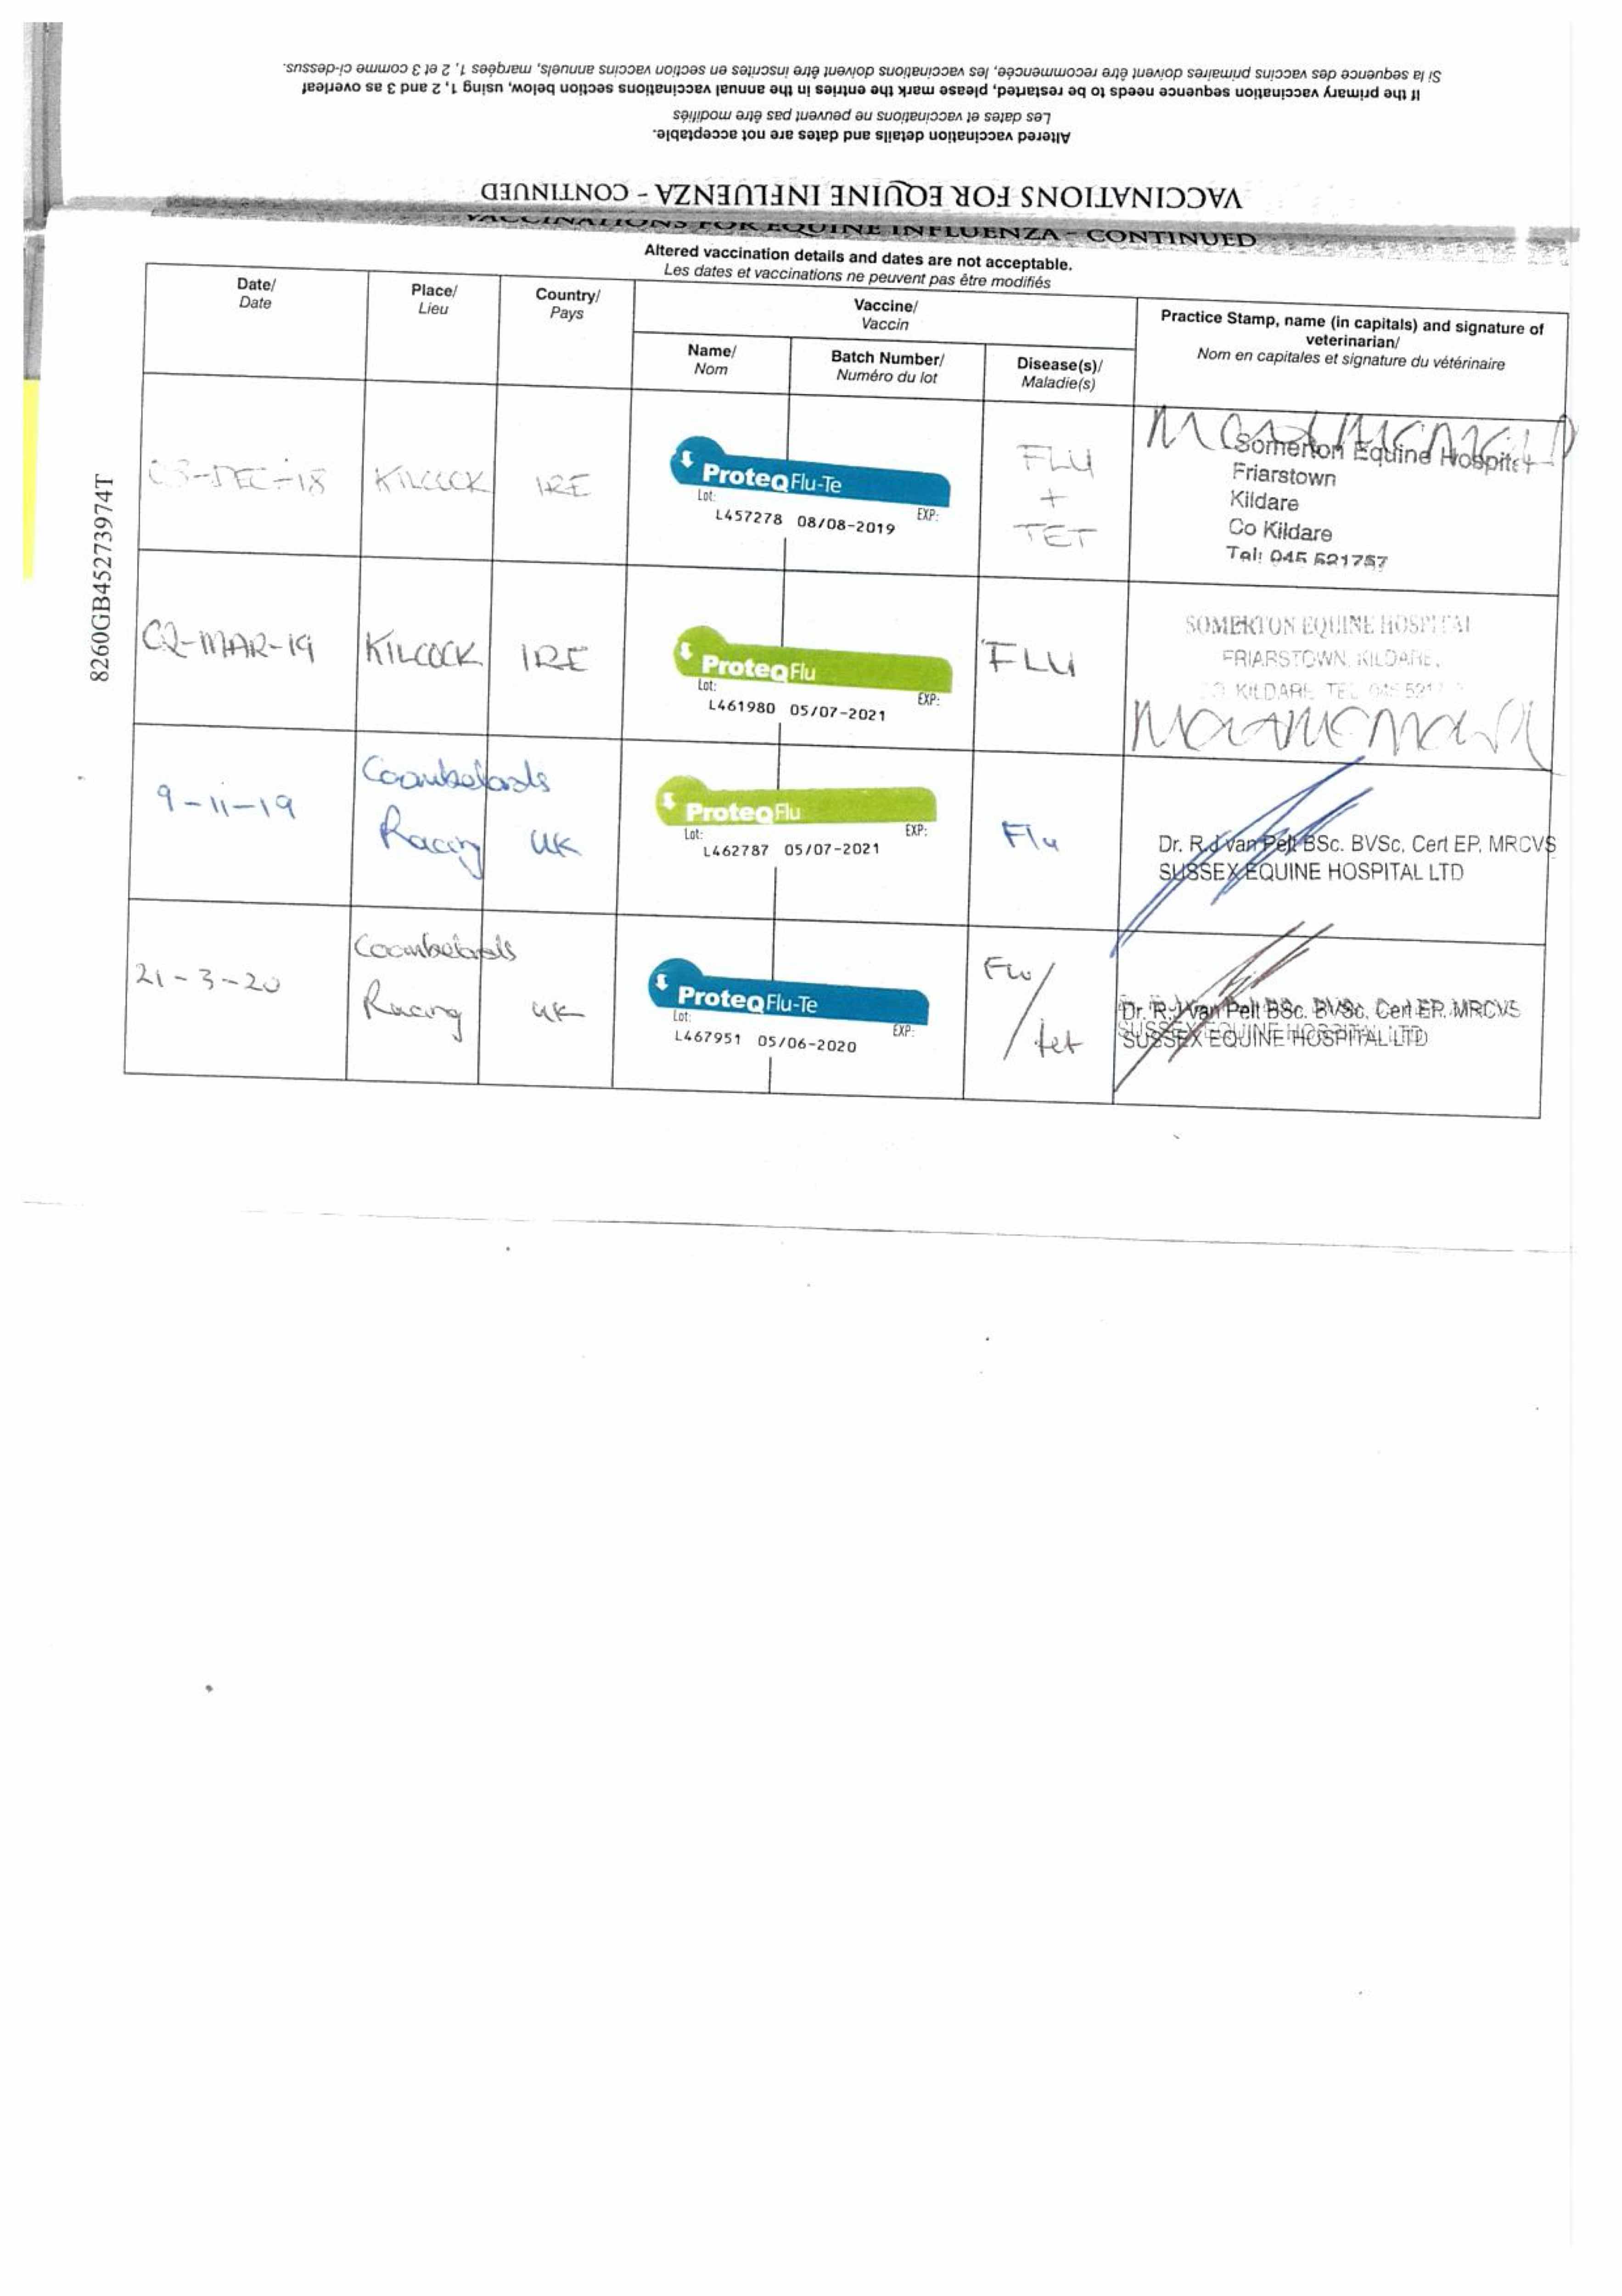 Si la séquence des vaccins primaires doivent être recommencée, les vaccinations doivent être inscrites en section vaccins annuels, marqées 1, 2 et 3 comme ci-dessus.
If the primary vaccination sequence needs to be restarted, please mark the entries in the annual vaccinations section below, using 1, 2 and 3 as overleaf
Les dates et vaccinations ne peuvent pas être modifiés
Altered vaccination details and dates are not acceptable.
VACCINATIONS FOR EQUINE INFLUENZA - CONTINUED
VACCINATIONS FOR EQUINE INFLUENZA - CONTINUED
Altered vaccination details and dates are not acceptable.
Les dates et vaccinations ne peuvent pas être modifiés
Date/
Date
Place/
Lieu
Country/
Pays
Vaccine/
Vaccin
Name/
Nom
Batch Number/
Numéro du lot
Disease(s)/
Maladie(s)
Practice Stamp, name (in capitals) and signature of
veterinarian/
Nom en capitales et signature du vétérinaire
8260GB45273974T
03-DEC-18
KILCOCK
IRE
ProteqFlu-Te
Lot:
EXP:
L457278 08/08-2019
FLU
+
TET
Somerton Equine Hospital
Friarstown
Kildare
Co Kildare
Tel: 045 521757
02-MAR-19
KILCOCK
IRE
ProteqFlu
Lot:
EXP:
L461980 05/07-2021
FLU
SOMERTON EQUINE HOSPITAL
FRIARSTOWN, KILDARE,
CO. KILDARE TEL 045 5217
9-11-19
Coombelands
Racing
UK
ProteqFlu
Lot:
EXP:
L462787 05/07-2021
Flu
Dr. R.J van Pelt BSc. BVSc. Cert EP. MRCVS
SUSSEX EQUINE HOSPITAL LTD
21-3-20
Coombelands
Racing
UK
ProteqFlu-Te
Lot:
EXP:
L467951 05/06-2020
Flu/
tet
Dr. R.J van Pelt BSc. BVSc. Cert EP. MRCVS
SUSSEX EQUINE HOSPITAL LTD